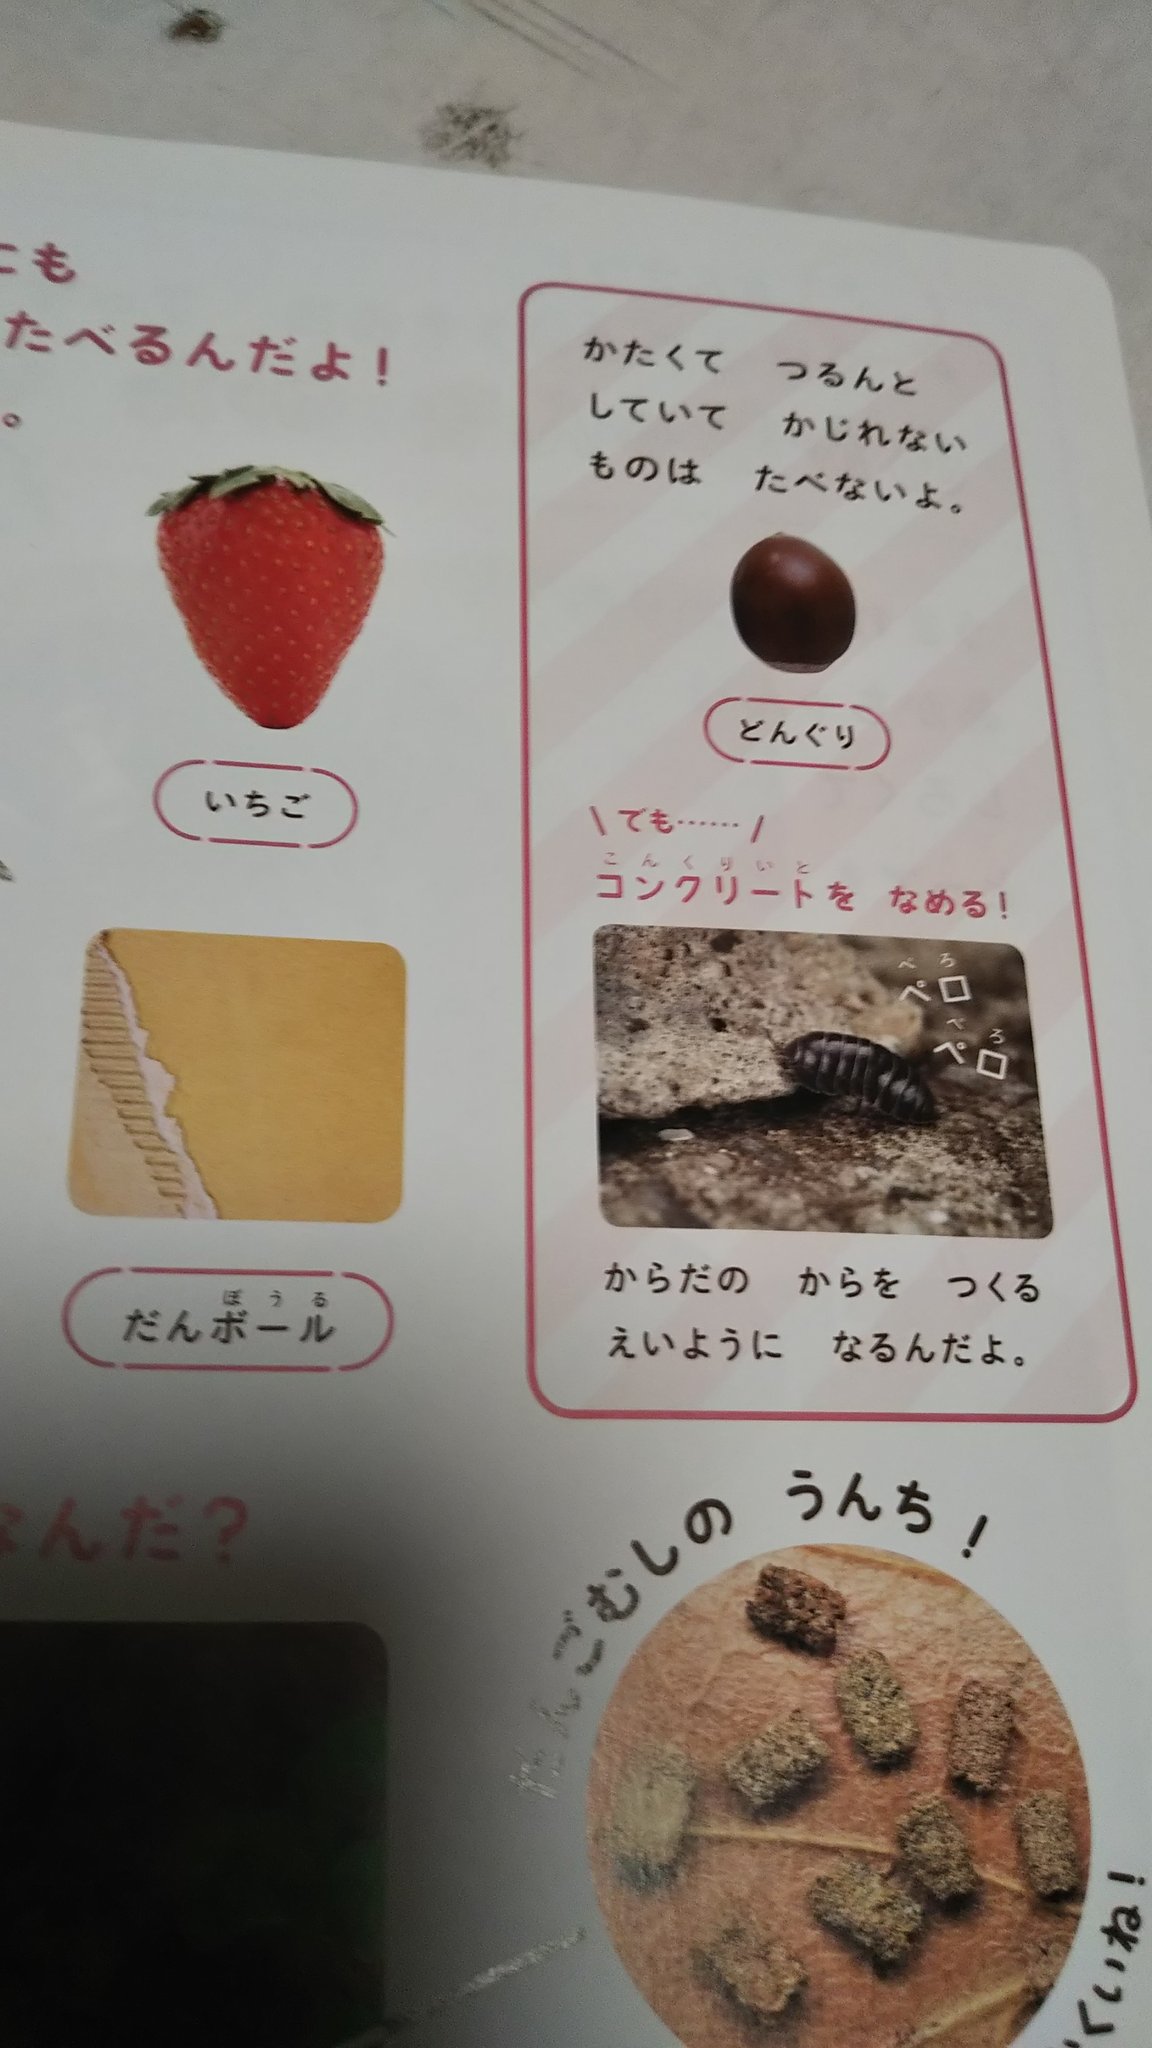 にも
たべるんだよ！
。
いちご
ぼうる
だんボール
かたくて つるんと
していて かじれない
ものは たべないよ。
どんぐり
\ でも…… /
こんくりいと
コンクリートを なめる！
ぺろ
ペロ
ぺろ
ペロ
からだの からを つくる
えいように なるんだよ。
なんだ？
だんごむしの うんち！
いね！